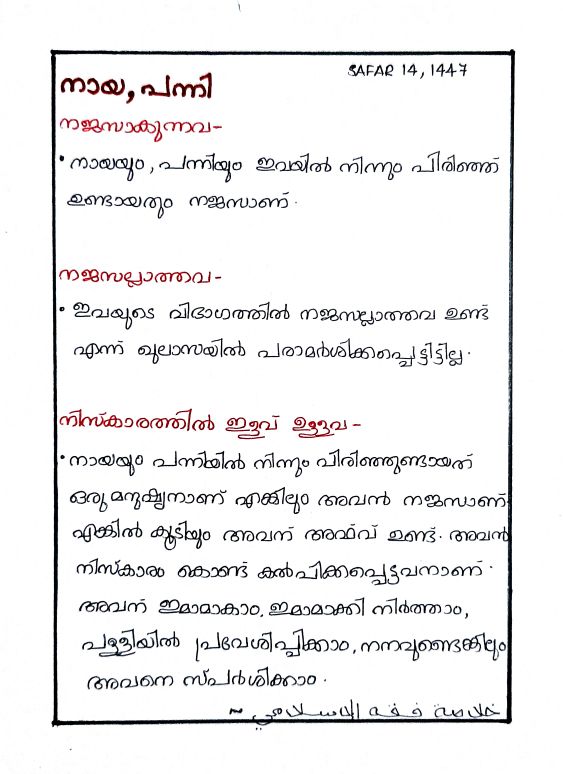 SAFAR 14, 1447
നായ, പന്നി
നജസാകുന്നവ-
• നായയും, പന്നിയും ഇവയിൽ നിന്നും പിരിഞ്ഞ്
ഉണ്ടായതും നജസാണ്.
നജസല്ലാത്തവ-
• ഇവയുടെ വിഭാഗത്തിൽ നജസല്ലാത്തവ ഉണ്ട്
എന്ന് ഖുലാസയിൽ പരാമർശിക്കപ്പെട്ടിട്ടില്ല.
നിസ്കാരത്തിൽ ഇളവ് ഉള്ളവ-
• നായയും പന്നിയിൽ നിന്നും പിരിഞ്ഞുണ്ടായത്
ഒരു മനുഷ്യനാണ് എങ്കിലും അവൻ നജസാണ്.
എങ്കിൽ കൂടിയും അവന് അഫ്‌വ് ഉണ്ട്. അവൻ
നിസ്കാരം കൊണ്ട് കൽപിക്കപ്പെട്ടവനാണ്.
അവന് ഇമാമാകാം, ഇമാമാക്കി നിർത്താം,
പള്ളിയിൽ പ്രവേശിപ്പിക്കാം, നനവുണ്ടെങ്കിലും
അവനെ സ്പർശിക്കാം.
خلاصة فقه الاسلامي ~